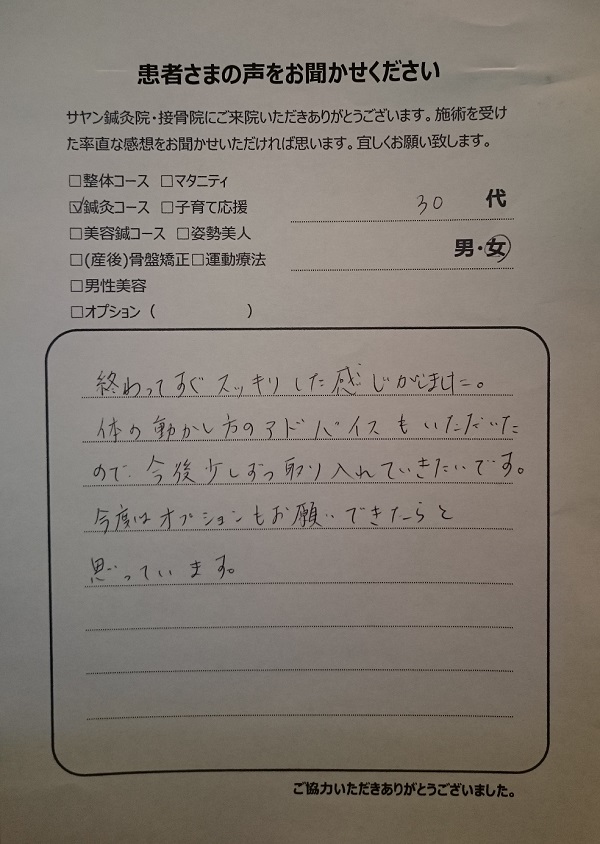 患者さまの声をお聞かせください
サヤン鍼灸院・接骨院にご来院いただきありがとうございます。施術を受け
た率直な感想をお聞かせいただければ思います。宜しくお願い致します。
□整体コース □マタニティ
☑鍼灸コース □子育て応援
30 代
□美容鍼コース □姿勢美人
男・女
□(産後)骨盤矯正□運動療法
□男性美容
□オプション（ ）
終わってすぐスッキリした感じがしました。
体の動かし方のアドバイスもいただいた
ので、今後少しずつ取り入れていきたいです。
今度はオプションもお願いできたらと
思っています。
ご協力いただきありがとうございました。